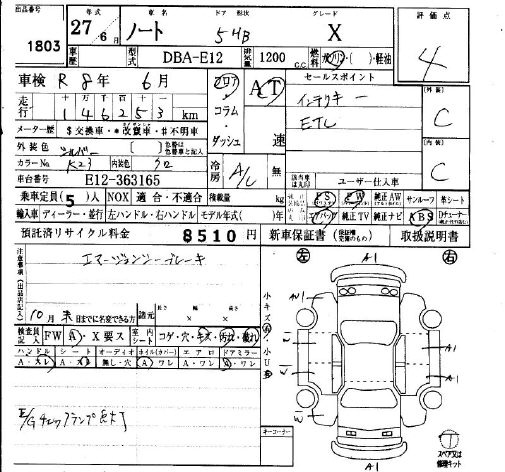 出品番号 1803
年式 27年 6月 車名 ノート ドア 形状 5HB グレード X 評価点 4
型式 DBA-E12 排気量 1200 C.C 燃料 ガソリン・( )・軽油
車検 R 8年 6月 フロア・コラム・ダッシュ AT 速 セールスポイント
走行 146253 km インテリキー
メーター歴 $交換車・*改ざん車・#不明車 ETC
外装色 シルバー 色替は色替車と記入 外装 C
カラーNo K23 内装色 クロ 冷房 A/C 無 内装 C
車台番号 E12-363165 ユーザー仕入車
乗車定員(5)人 NOX 適合・不適合 積載量 kg PS PW 純正AW サンルーフ 革シート
輸入車 ディーラー・並行 左ハンドル・右ハンドル モデル年式( )年 エアバッグ 純正TV 純正ナビ ABS
預託済リサイクル料金 8510円 新車保証書 取扱説明書
注意事項(出品店記入) エマージェンシーブレーキ
左 A1 右
10月末日までに名変できる方 諸元 長さ 幅 高さ × ×
検査員記入 FW A・X要ス 室内シート コゲ・穴・キズ・汚れ・破れ
ハンドル シート オーディオ ホイル(カバー) エアロ ドアミラー
無し・穴 ワレ A・ワレ
E/Gチェックランプ点灯
キーコーナー
A1
A1
A1
W
A1
スペア又は修理キット